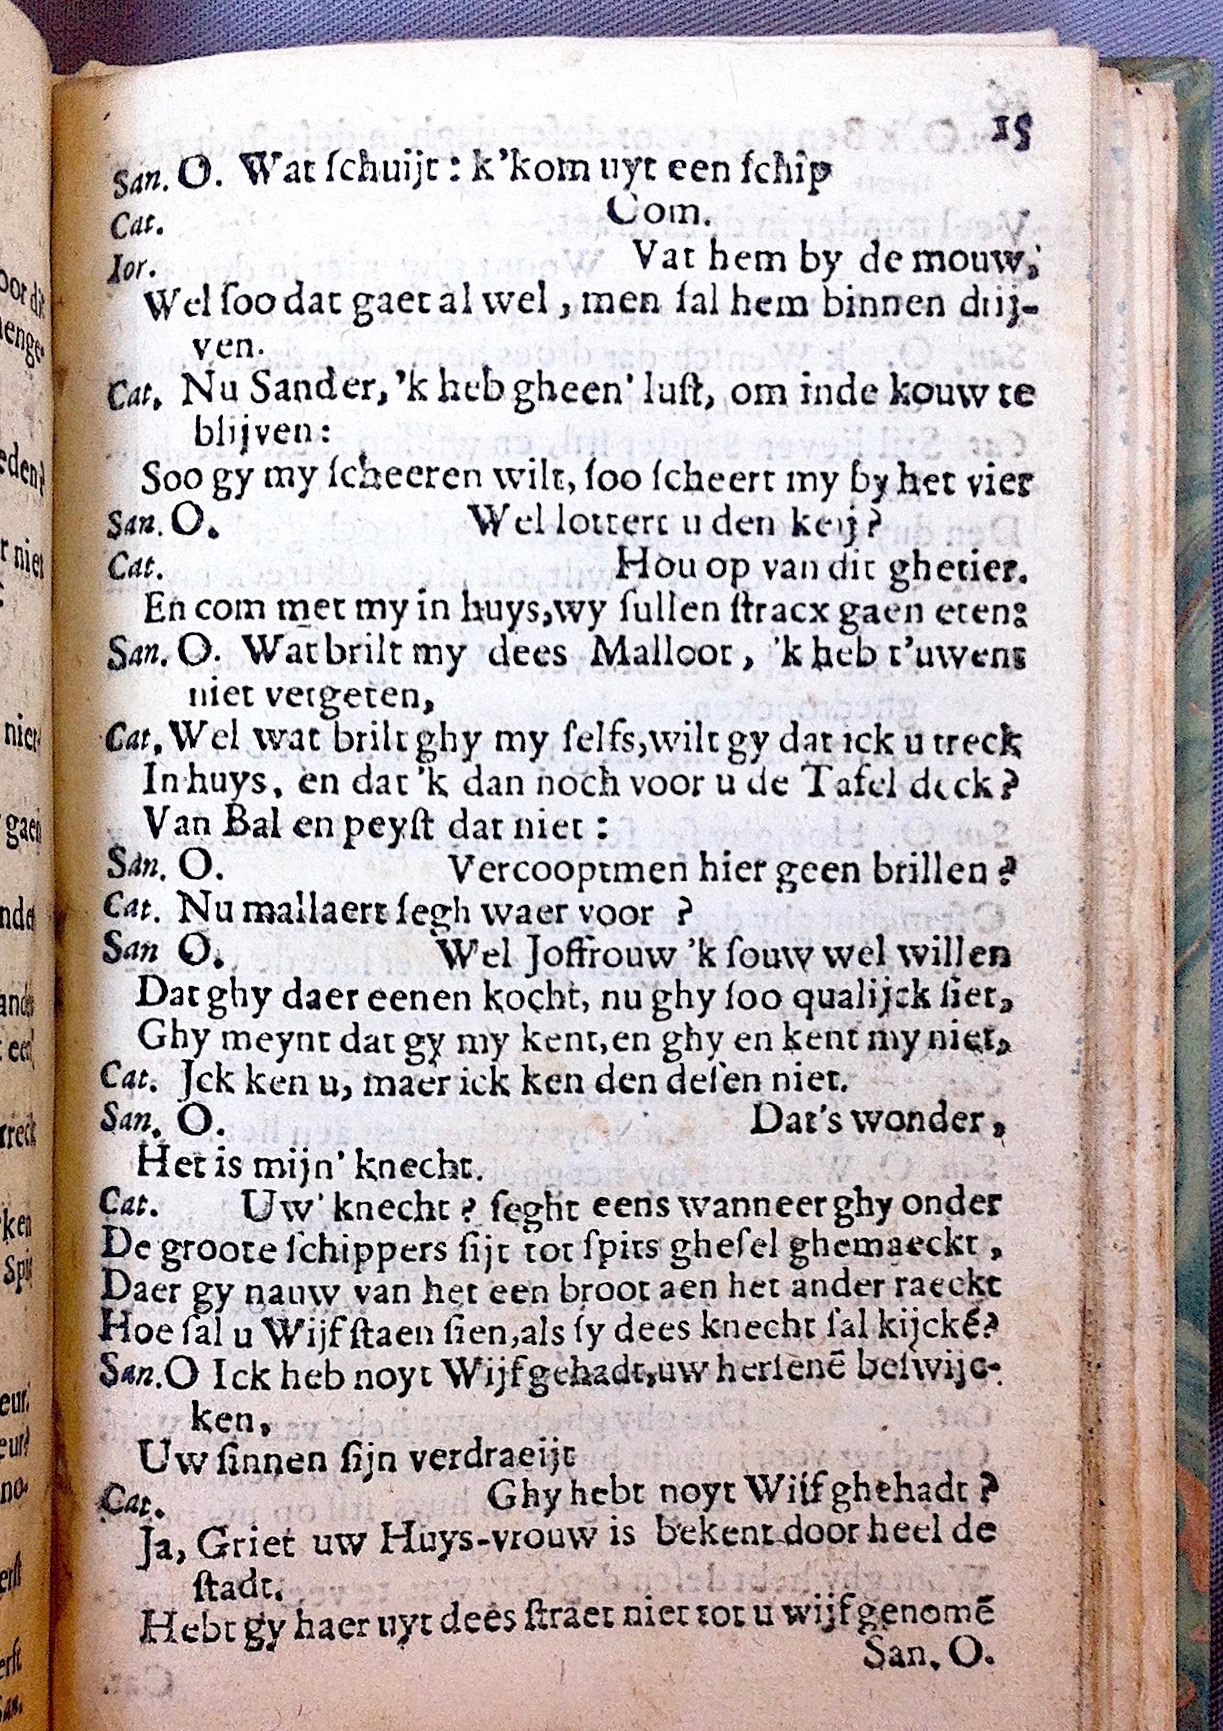 15
San. O. Wat ſchuijt : k'kom uyt een ſchip
Cat. Com.
Ior. Vat hem by de mouw,
Wel ſoo dat gaet al wel, men ſal hem binnen drij-
ven.
Cat. Nu Sander, 'k heb gheen' luſt, om inde kouw te
blijven:
Soo gy my ſcheeren wilt, ſoo ſcheert my by het vier
San. O. Wel lottert u den keij?
Cat. Hou op van dit ghetier.
En com met my in huys, wy ſullen ſtracx gaen eten:
San. O. Wat brilt my dees Malloot, 'k heb t'uwens
niet vergeten,
Cat. Wel wat brilt ghy my ſelfs, wilt gy dat ick u treck
In huys, en dat 'k dan noch voor u de Tafel deck?
Van Bal en peyſt dat niet:
San. O. Vercooptmen hier geen brillen?
Cat. Nu mallaert ſegh waer voor ?
San O. Wel Joffrouw 'k ſouw wel willen
Dat ghy daer eenen kocht, nu ghy ſoo qualijck ſiet,
Ghy meynt dat gy my kent, en ghy en kent my niet,
Cat. Jck ken u, maer ick ken den deſen niet.
San. O. Dat's wonder,
Het is mijn' knecht.
Cat. Uw' knecht? ſeght eens wanneer ghy onder
De groote ſchippers ſijt tot ſpits gheſel ghemaeckt,
Daer gy nauw van het een broot aen het ander raeckt
Hoe ſal u Wijf ſtaen ſien, als ſy dees knecht ſal kijckē?
San. O Ick heb noyt Wijf gehadt, uw herſenē beſwijc-
ken,
Uw ſinnen ſijn verdraeijt
Cat. Ghy hebt noyt Wijf ghehadt?
Ja, Griet uw Huys-vrouw is bekent door heel de
ſtadt.
Hebt gy haer uyt dees ſtraet niet tot u wijf genomē
San. O.